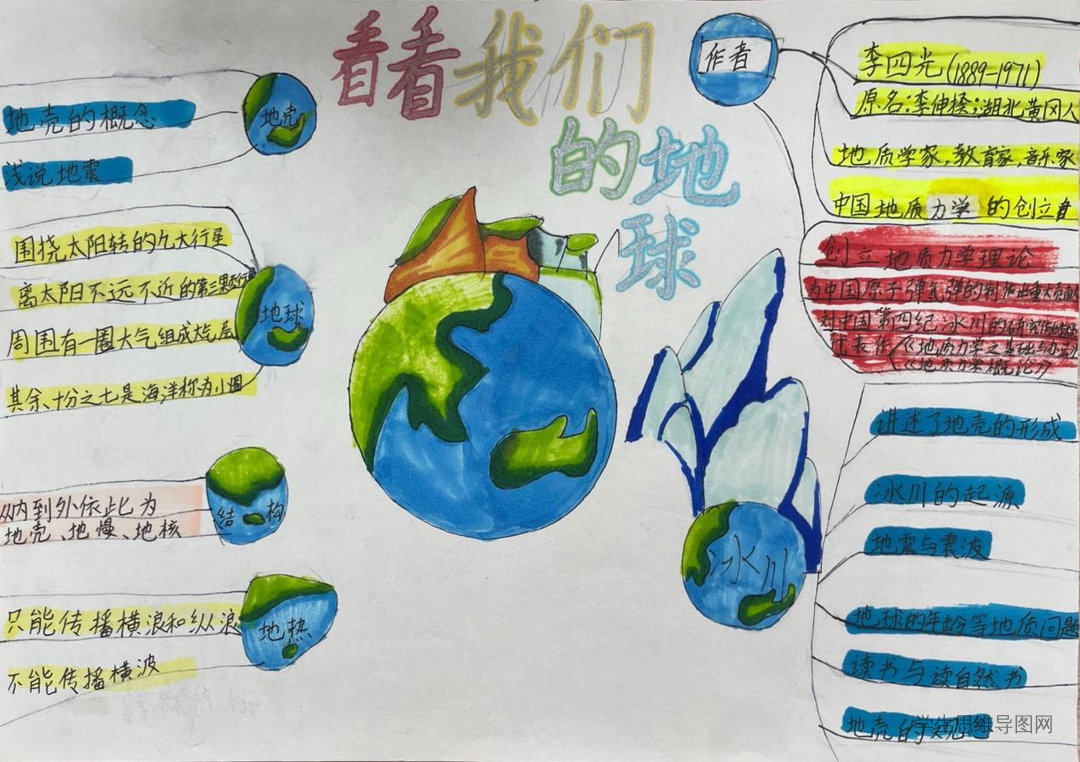 看看我们
的地
球
地壳
地壳的概念
浅说地震
地球
围绕太阳转的九大行星
离太阳不远不近的第三颗行星
周围有一圈大气组成大气层
其余、十分之七是海洋称为小圆
结构
从内到外依此为
地壳、地慢、地核
地热
只能传播横浪和纵浪
不能传播横波
作者
李四光(1889-1971)
原名:李仲揆;湖北黄冈人
地质学家,教育家,音乐家
中国地质力学的创立者
创立地质力学理论
为中国原子弹氢弹的制作出重大贡献
对中国第四纪冰川的研究
代表作《地质力学之基础与方法》
《地质力学概论》
冰川
讲述了地壳的形成
冰川的起源
地震与震波
地球的年龄等地质问题
读书与读自然书
地壳的
学生思维导图网